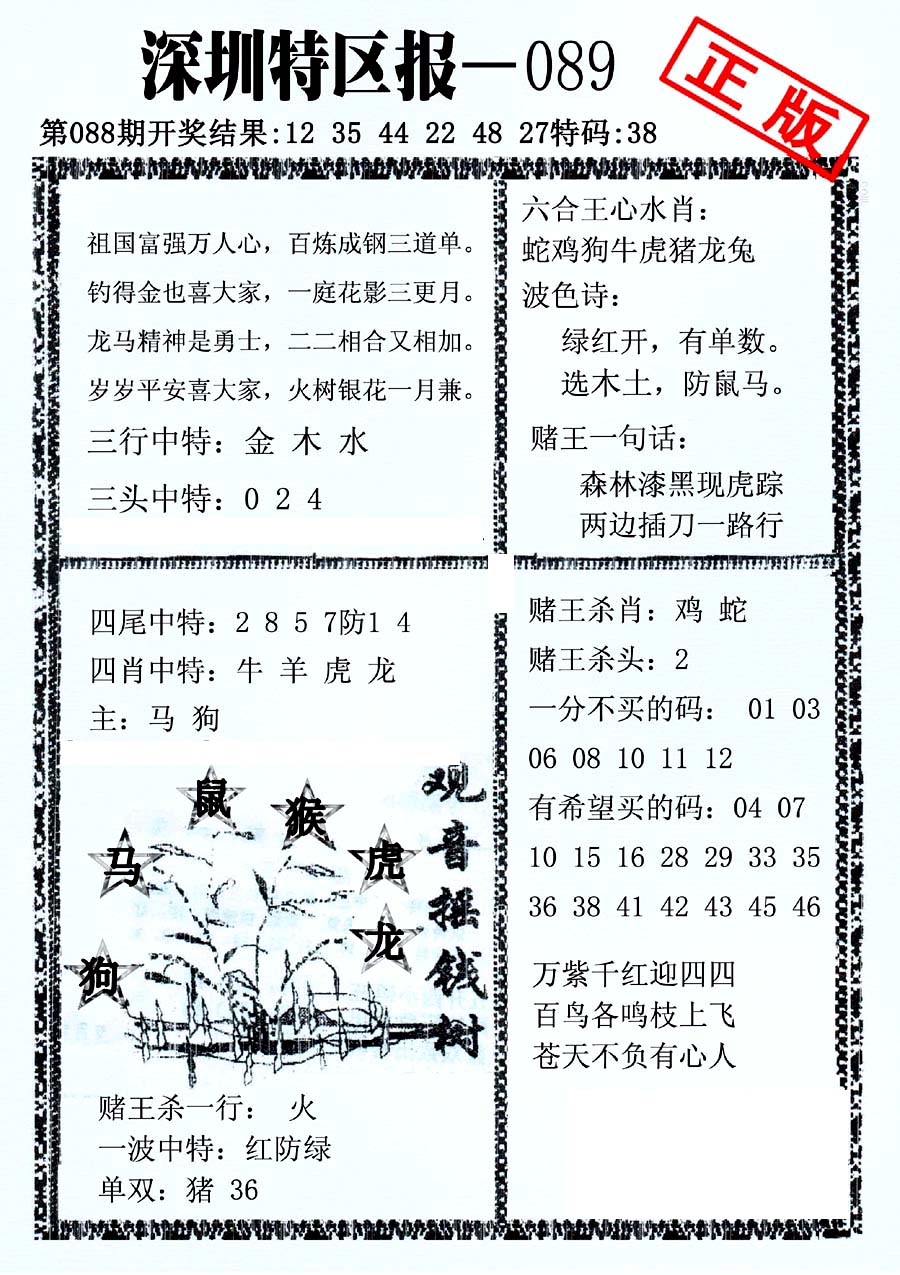 深圳特区报—089
正版
第088期开奖结果:12 35 44 22 48 27特码:38
祖国富强万人心，百炼成钢三道单。
钓得金也喜大家，一庭花影三更月。
龙马精神是勇士，二二相合又相加。
岁岁平安喜大家，火树银花一月兼。
三行中特：金 木 水
三头中特：0 2 4
六合王心水肖：
蛇鸡狗牛虎猪龙兔
波色诗：
绿红开，有单数。
选木土，防鼠马。
赌王一句话：
森林漆黑现虎踪
两边插刀一路行
四尾中特：2 8 5 7防1 4
四肖中特：牛 羊 虎 龙
主：马 狗
鼠
猴
马
虎
龙
狗
观音摇钱树
赌王杀一行： 火
一波中特：红防绿
单双：猪 36
赌王杀肖：鸡 蛇
赌王杀头：2
一分不买的码： 01 03
06 08 10 11 12
有希望买的码：04 07
10 15 16 28 29 33 35
36 38 41 42 43 45 46
万紫千红迎四四
百鸟各鸣枝上飞
苍天不负有心人